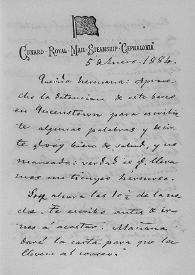 CUNARD·ROYAL·MAIL·STEAMSHIP·CEPHALONIA
5 Enero. 1884.
Querida hermana: Aprove
cho la detencion de este barco
en Queenstown para escribir
te algunas palabras y decir
te estoy bien de salud, y no
mareado: verdad es qe. lleva
mos un tiempo hermoso.
Son ahora las 10½ de la no
che. te escribo antes de ir
me á acostar. Mañana
daré la carta para que la
lleven al correo.